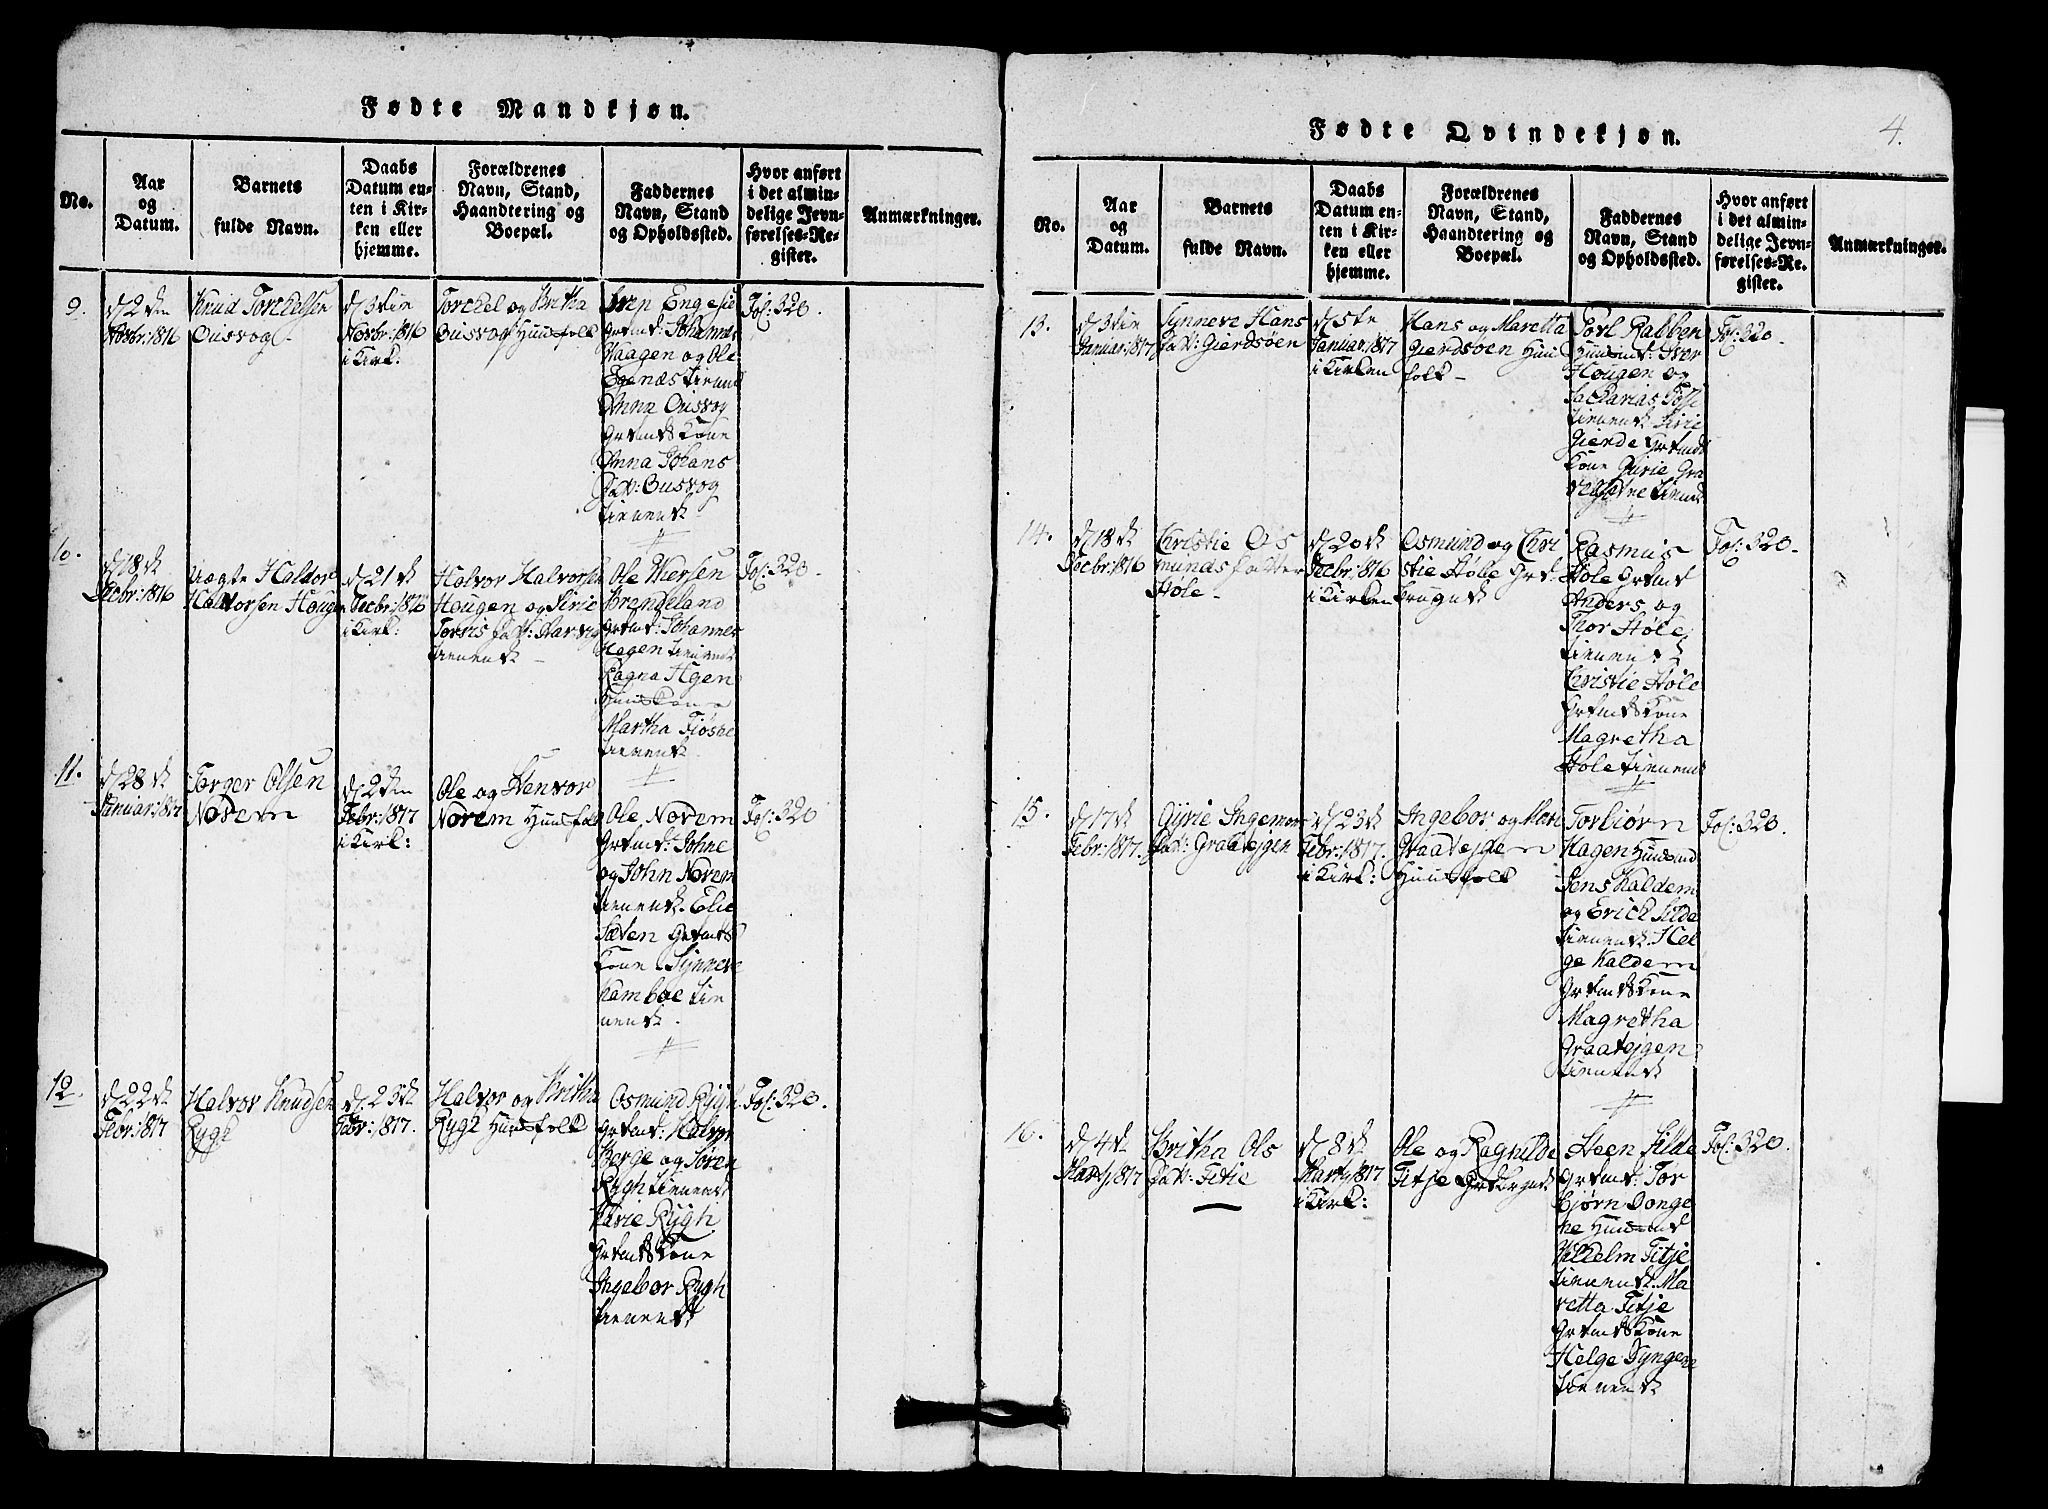 Fødte Mandkjøn.
No.
Aar
og
Datum.
Barnets
fulde Navn.
Daabs
Datum en-
ten i Kir-
ken eller
hjemme.
Forældrenes
Navn, Stand,
Haandtering og
Boepæl.
Faddernes
Navn, Stand
og Opholdssted.
Hvor anført
i det almin-
delige Jevn-
førelses-Re-
gister.
Anmærkninger.
9.
d 2den
Novbr: 1816
Knud Torchelsen
Ousvog
d 3die
Novbr: 1816
i Kirk:
Torchel og Britha
Ousvog Huusfolk
Engesie
Grdmd: Johannes
Haagen og Ole
Egenæs tienend
Anna Ousvog
Grdmds Kone
Anna Johans
Dat: Ousvog
tienende
Fol: 320
10.
d 18de
Decbr: 1816
Halvorsen Hougen
d 21de
Decbr: 1816
i Kirk:
Halvor Halvorsen
Hougen og Sirie
tienende
Ole Wiersen
Brendeland
Grdmd: Johannes
Hagen tienende
Ragna
Huuskone
Martha Fjøsne
tienende
Fol: 320.
11.
d 28de
Januar: 1817
Torger Olsen
Norem
d 2den
Febr: 1817
i Kirk:
Ole og Stenvor
Norem Huusfolk
Ole Norem
Grdmd: Johne
og John Norem
tienende. Elie
Sæten Grdmds
Kone. Synneve
Kamboe tie
nende.
Fol: 320
12.
d 22de
Febr: 1817
Halvor Knudsen
Rygh
d 23de
Febr: 1817.
Halvor og Britha
Rygh Huusfolk
Osmund Rygh
Grdmd: Halvor
Berge og Søren
Rygh tienende
Karie Rygh
Grdmds Kone
Ingebor Rygh
tienende
Fol: 320.
Fødte Qvindekjøn.
4.
No.
Aar
og
Datum.
Barnets
fulde Navn.
Daabs
Datum en-
ten i Kir-
ken eller
hjemme.
Forældrenes
Navn, Stand,
Haandtering og
Boepæl.
Faddernes
Navn, Stand
og Opholdssted.
Hvor anført
i det almin-
delige Jevn-
førelses-Re-
gister.
Anmærkninger.
13.
d 3die
Januar: 1817
Synneve Hans
Dat: Gierdsøen
d 5te
Januar: 1817
i Kirken
Hans og Maretta
Gierdsøen Huus
folk
Rabben
Huusmd: Iver
Hougen og
Sacharias
tienende Sirie
Gierde Grdmds
Kone Gurie
tienende
Fol: 320.
14.
d 18de
Decbr: 1816
Christie Os
munds Datter
Støle
d 20de
Decbr: 1816
i Kirken
Osmund og Chri
stie Støle Grd
brugende
Rasmus
Støle Grdmd
Anders og
Thor Støle
tienende
Christie Støle
Grdmds Kone
Magretha
Støle tienende
Fol: 320.
15.
d 17de
Febr: 1817.
Gyrie Ingemor
Dat: Graatejgen
d 23de
Febr: 1817.
i Kirk:
Ingebor og Mari
Graatejgen
Huusfolk
Torbiørn
Hagen Huusmd
Jens Kaldem
og Erich Silde
tienende. Hel
ge Kaldem
Grdmds Kone
Magretha
Graatejgen
tienende
Fol: 320.
16.
d 4de
Marty 1817
Britha Ols
Dat: Fitje
d 8de
Marty 1817
i Kirk:
Ole og Ragnilde
Fitje Grdbrgnde
Steen Silde
Grdmd: Tor
bjørn Donge
ne Huusmd
Vilhelm Fitje
tienende. Ma
retta Fitje
Grdmds Kone
Helge
tienende
Fol: 320.